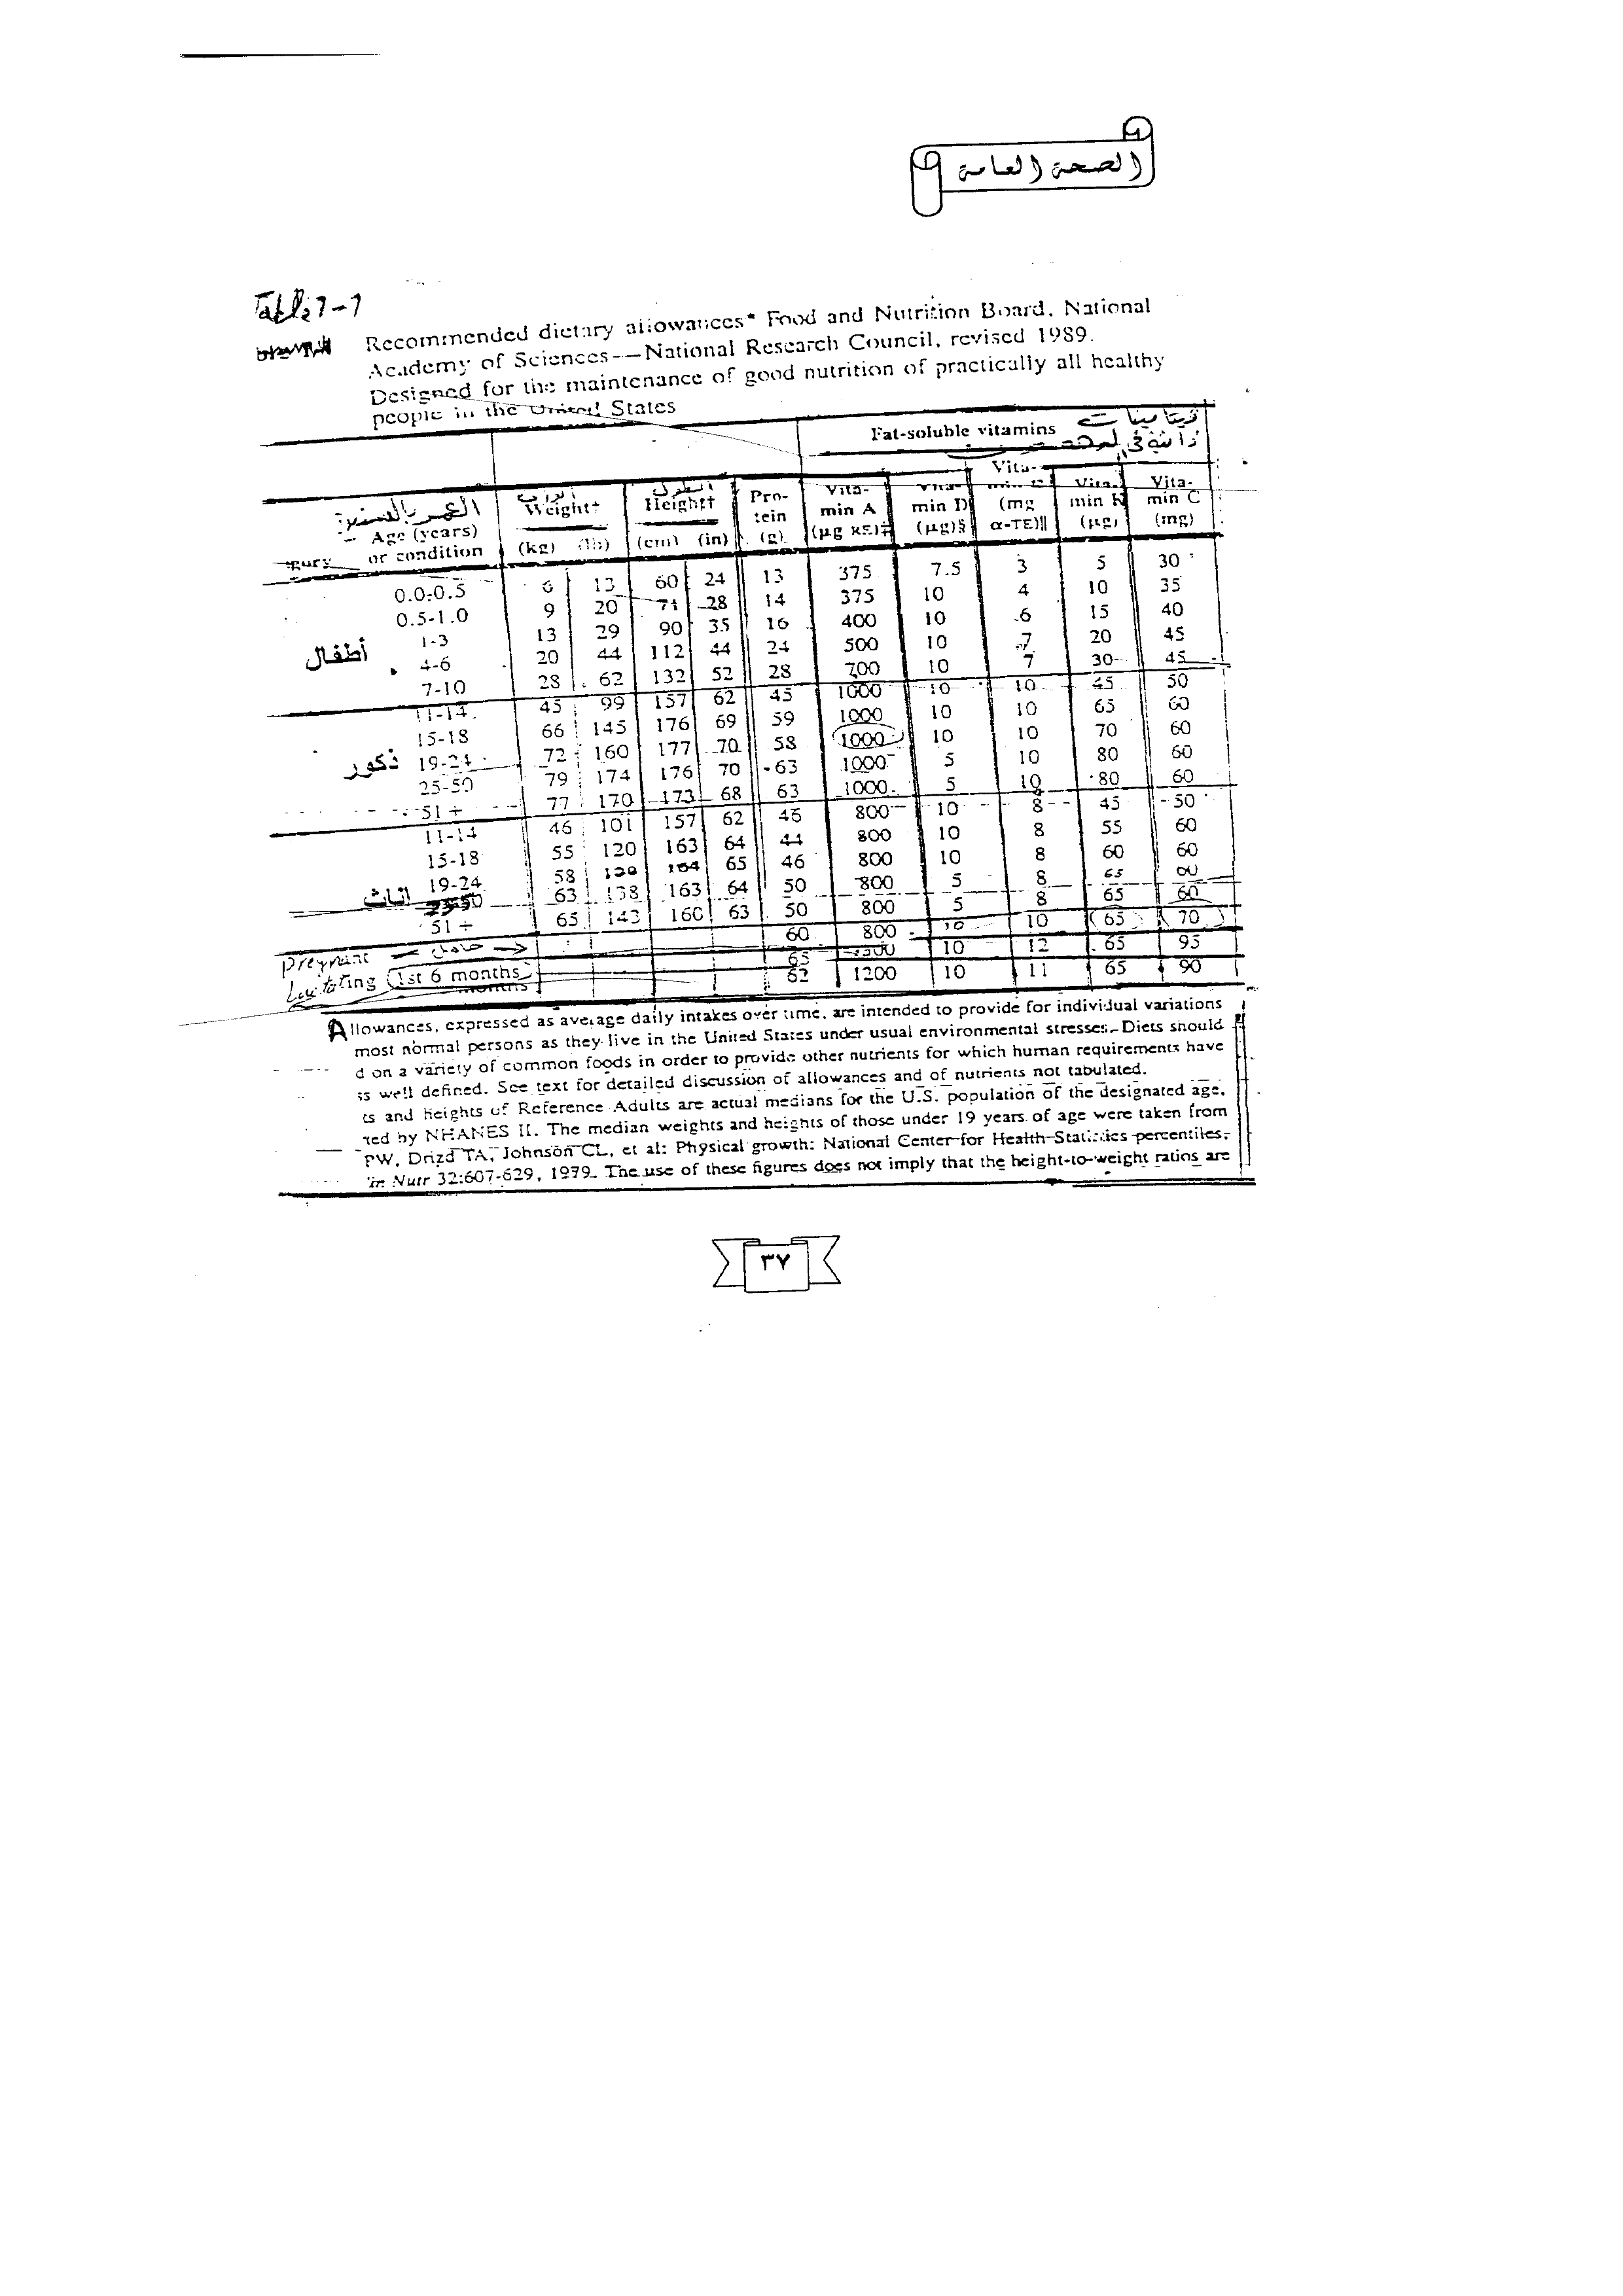 الصحة العامة
Table 7-7
Recommended dietary allowances* Food and Nutrition Board, National
Academy of Sciences--National Research Council, revised 1989.
Designed for the maintenance of good nutrition of practically all healthy
people in the United States
Fat-soluble vitamins فيتامينات
ذائبة في
العمر بالسنين Weight† الطول Height† Pro-tein (g) Vita-min A (µg RE)‡ Vita-min D (µg)§ Vita- (mg α-TE)|| Vita-min K (µg) Vita-min C (mg)
Age (years)
or condition (kg) (lb) (cm) (in)
0.0-0.5 6 13 60 24 13 375 7.5 3 5 30
0.5-1.0 9 20 71 28 14 375 10 4 10 35
أطفال 1-3 13 29 90 35 16 400 10 6 15 40
4-6 20 44 112 44 24 500 10 7 20 45
7-10 28 62 132 52 28 700 10 7 30 45
11-14 45 99 157 62 45 1000 10 10 45 50
15-18 66 145 176 69 59 1000 10 10 65 60
ذكور 19-24 72 160 177 70 58 1000 10 10 70 60
25-50 79 174 176 70 63 1000 5 10 80 60
51+ 77 170 173 68 63 1000 5 10 80 60
11-14 46 101 157 62 46 800 10 8 45 50
15-18 55 120 163 64 44 800 10 8 55 60
19-24 58 164 65 46 800 10 8 60 60
اناث 63 138 163 64 50 800 5 8 65 60
51+ 65 143 160 63 50 800 5 8 65 60
Pregnant حامل 60 800 10 10 65 70
Lactating 1st 6 months 65 10 12 65 95
months 62 1200 10 11 65 90
Allowances, expressed as average daily intakes over time, are intended to provide for individual variations
most normal persons as they live in the United States under usual environmental stresses. Diets should
d on a variety of common foods in order to provide other nutrients for which human requirements have
ss well defined. See text for detailed discussion of allowances and of nutrients not tabulated.
ts and heights of Reference Adults are actual medians for the U.S. population of the designated age,
ted by NHANES II. The median weights and heights of those under 19 years of age were taken from
PW, Drizd TA, Johnson CL, et al: Physical growth: National Center for Health Statistics percentiles.
in Nutr 32:607-629, 1979. The use of these figures does not imply that the height-to-weight ratios are
٣٧